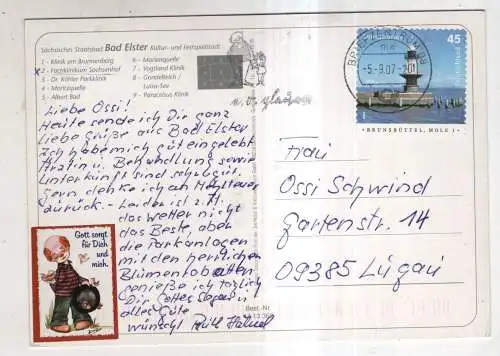 Sächsisches Staatsbad Bad Elster Kultur- und Festspielstadt
1 - Klinik am Brunnenberg
x 2 - Fachklinikum Sachsenhof
3 - Dr. Köhler Parkklinik
4 - Moritzquelle
5 - Albert Bad
6 - Marienquelle
7 - Vogtland Klinik
8 - Gondelteich /
Luisa-See
9 - Paracelsus Klinik
Liebe Ossi!
Heute sende ich Dir ganz
liebe Grüße aus Bad Elster
Ich habe mich gut eingelebt
Ärztin u. Behandlung sowie
Unterkunft sind sehr gut.
Gern denke ich an
zurück. - Leider ist z. Zt.
das Wetter nicht
das Beste, aber
die Parkanlagen
mit den herrlichen
Blumenrabatten
genieße ich täglich
Dir Gottes Segen u.
alles Gute
wünscht
Gott sorgt
für Dich
und
mich.
Best.-Nr.
BRIEFZENTRUM
-5.-9.07-
45
BRUNSBÜTTEL, MOLE 1
Frau
Ossi Schwind
Gartenstr. 14
09385 Lugau